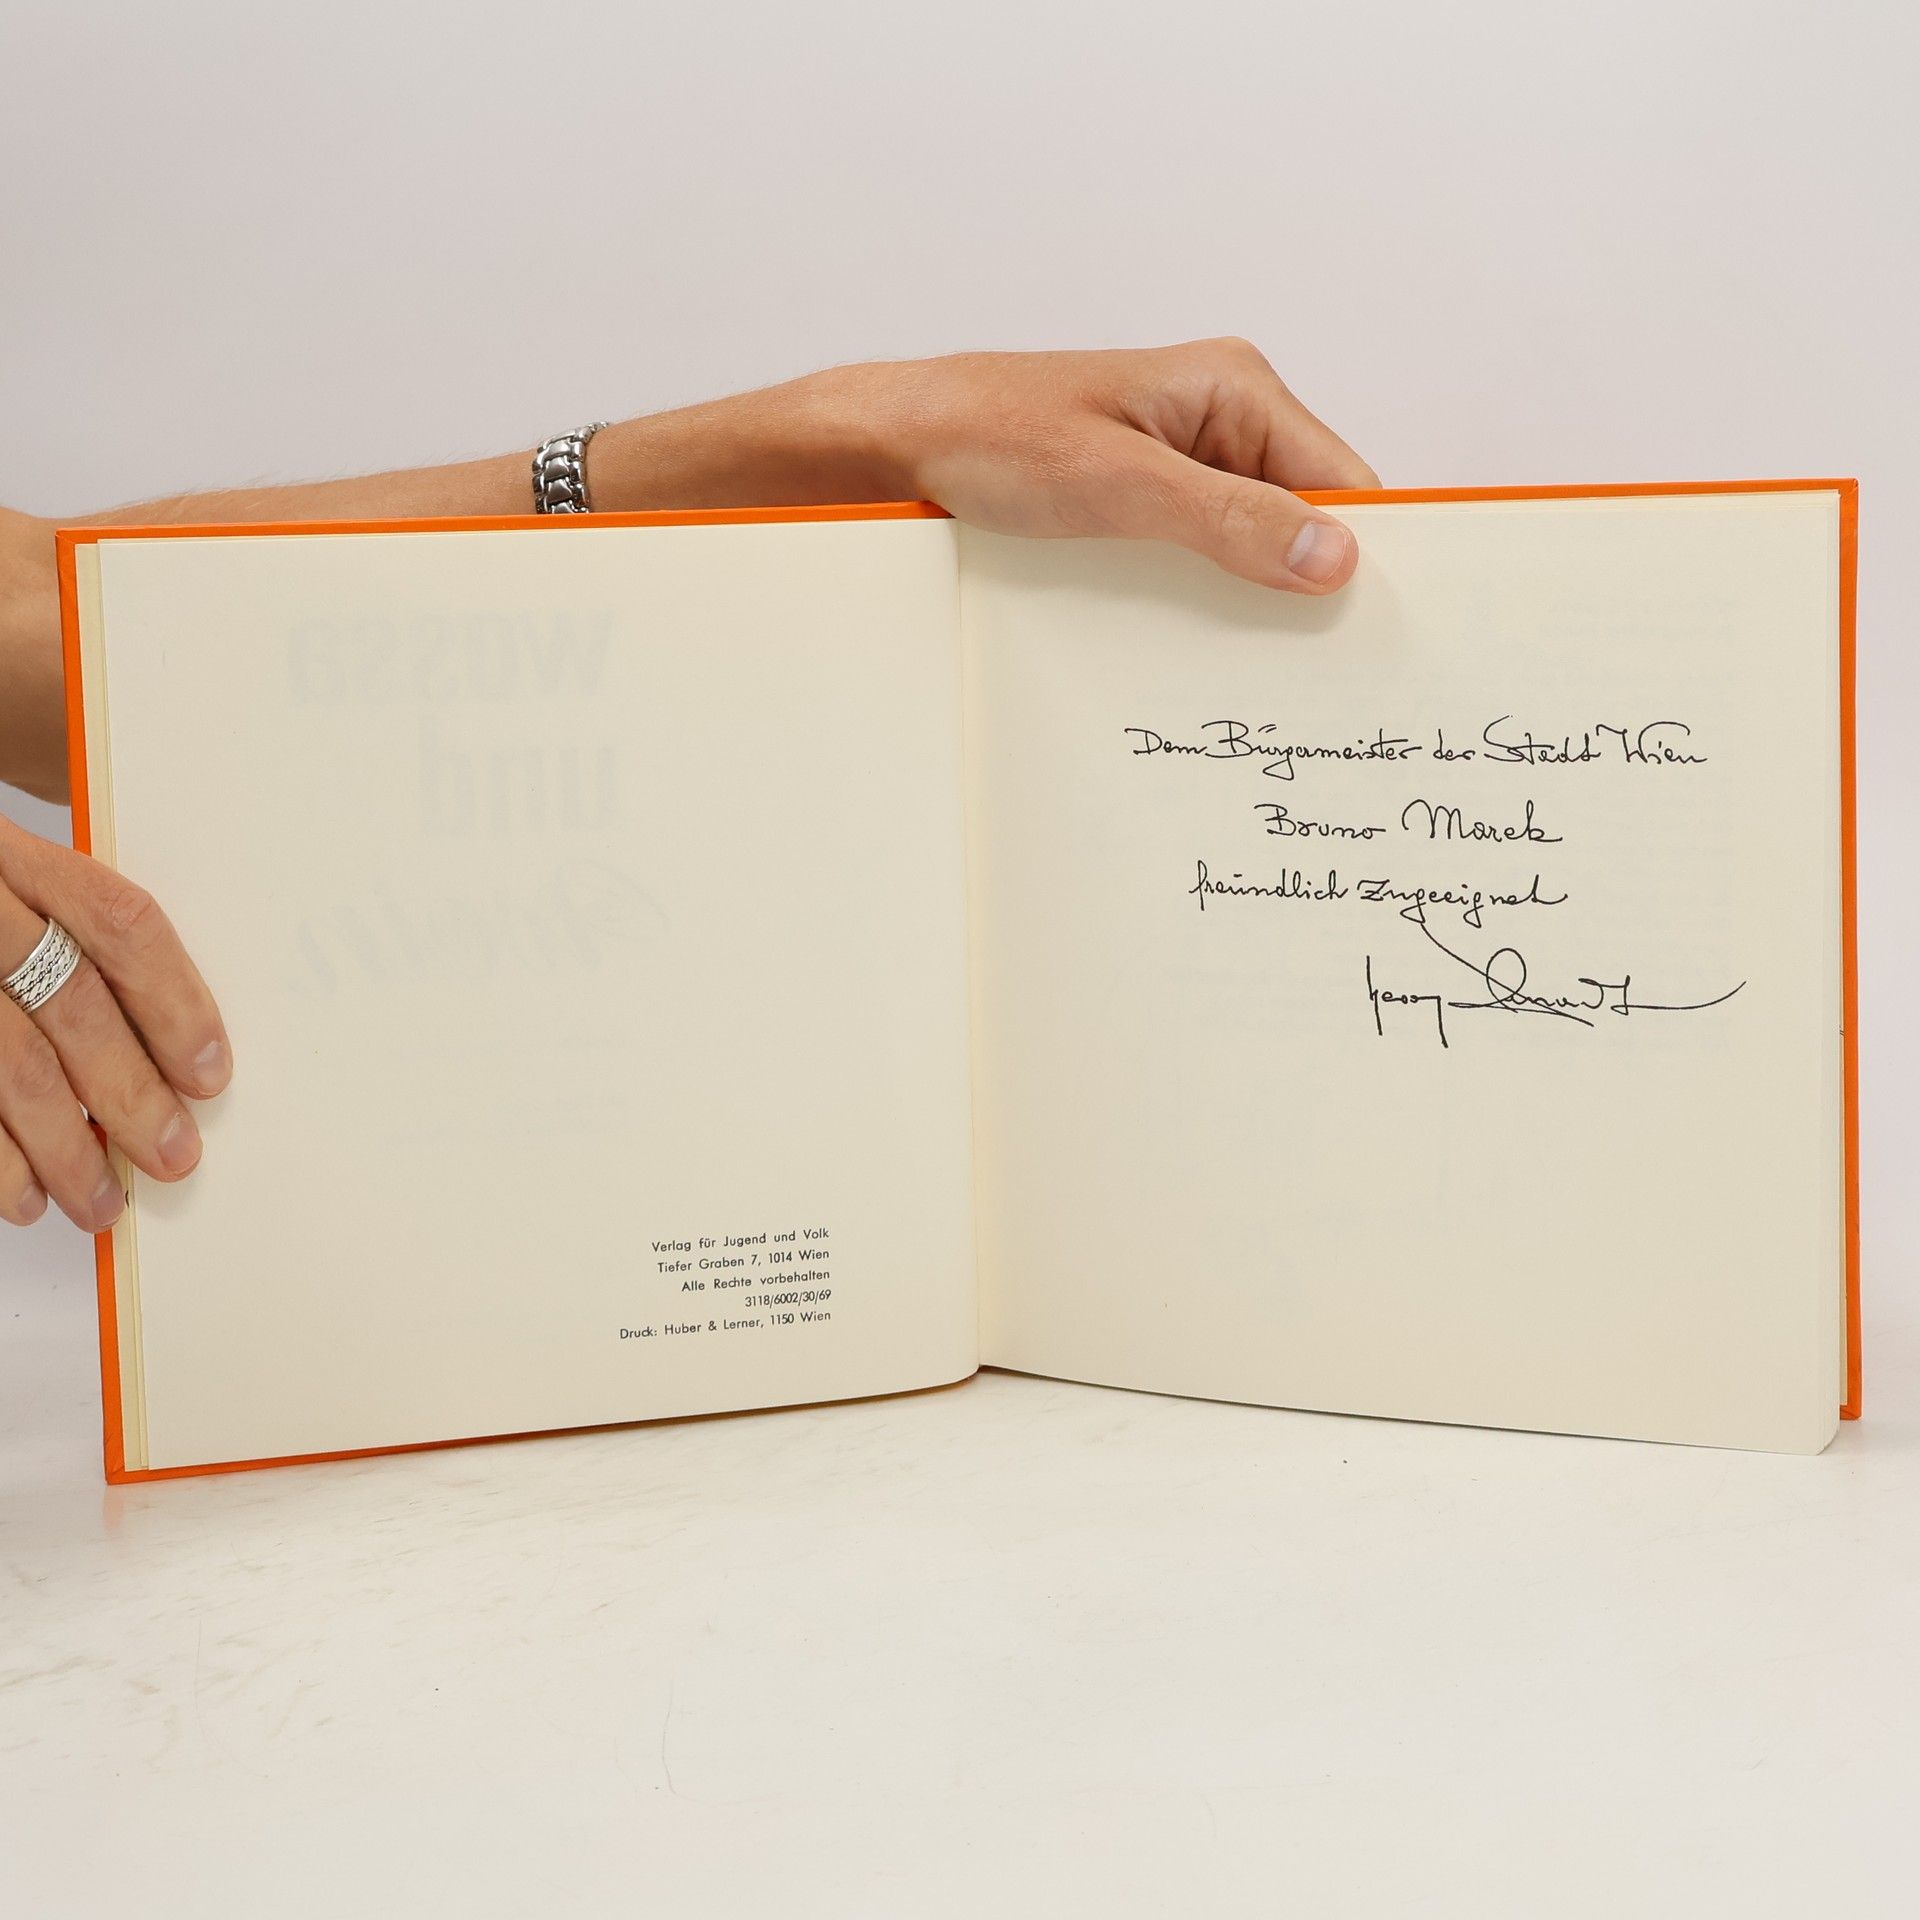 Verlag für Jugend und Volk
Tiefer Graben 7, 1014 Wien
Alle Rechte vorbehalten
3118/6002/30/69
Druck: Huber & Lerner, 1150 Wien
Dem Bürgermeister der Stadt Wien
Bruno Marek
freundlich zugeeignet